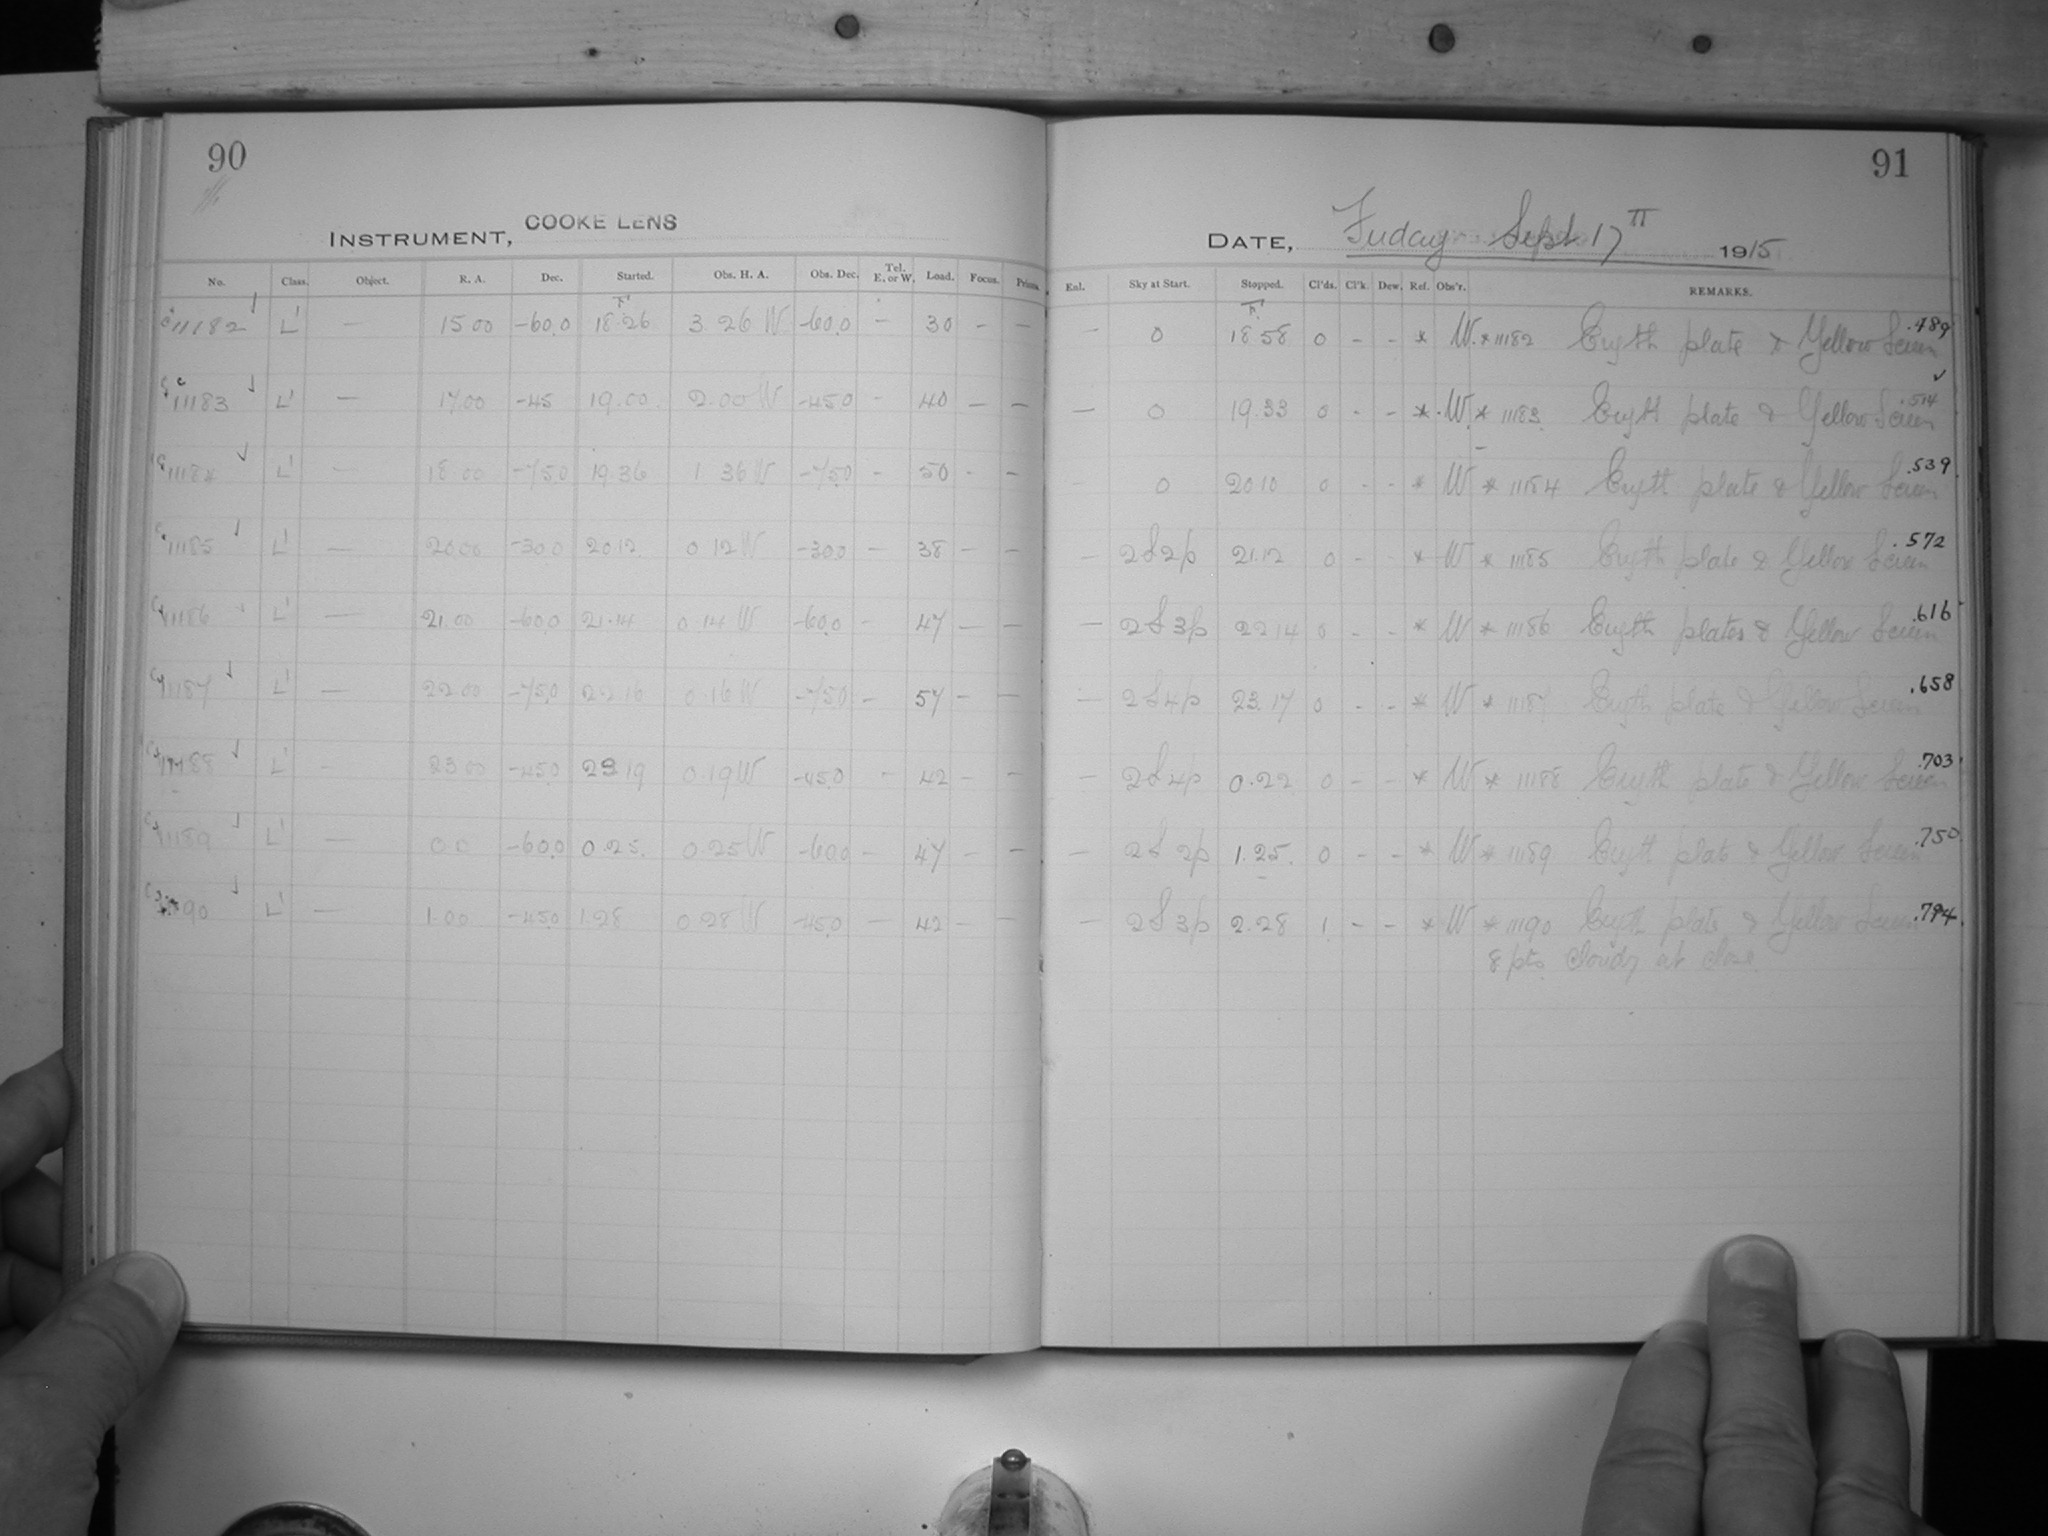 90
INSTRUMENT, COOKE LENS
No. Class. Object. R. A. Dec. Started. Obs. H. A. Obs. Dec. Tel. E. or W. Load. Focus. Prisms.
11182 L' — 15 00 -60.0 18.26 3.26 W -60.0 - 30 - -
11183 L' — 17.00 -45 19.00 2.00 W -45.0 - 40 - -
11184 L' — 18 00 -75.0 19.36 1 36 W -75.0 - 50 - -
11185 L' — 20.00 -30.0 20.12 0 12 W -30.0 - 38 - -
11186 L' — 21.00 -60.0 21.14 0 14 W -60.0 - 47 - -
11187 L' — 22.00 -75.0 22 16 0.16 W -75.0 - 57 - -
11188 L' - 23 00 -45.0 23 19 0.19 W -45.0 - 42 - -
11189 L' — 0.0 -60.0 0.25. 0.25 W -60.0 - 47 - -
90 L' — 1.00 -45.0 1.28 0 28 W -45.0 - 42 - -
91
DATE, Friday Sept 17 1915
Enl. Sky at Start. Stopped. Cl'ds. Cl'k. Dew. Ref. Obs'r. REMARKS.
— 0 18 58 0 - - * W. * 11182 Eryth plate & Yellow Screen .489
— 0 19.33 0 - - * W. * 11183 Eryth plate & Yellow Screen .514
0 20 10 0 - - * W * 11184 Eryth plate & Yellow Screen .539
— 2 S 2p 21.12 0 - - * W * 11185 Eryth plate & Yellow Screen .572
— 2 S 3p 22 14 0 - - * W * 11186 Eryth plates & Yellow Screen .616
— 2 S 4p 23.17 0 - - * W * 11187 Eryth plate & Yellow Screen .658
— 2 S 4p 0.22 0 - - * W * 11188 Eryth plate & Yellow Screen .703
— 2 S 2p 1.25. 0 - - * W * 11189 Eryth plate & Yellow Screen .750
— 2 S 3p 2.28 1 - - * W * 11190 Eryth plate & Yellow Screen .794
8 pts cloudy at close